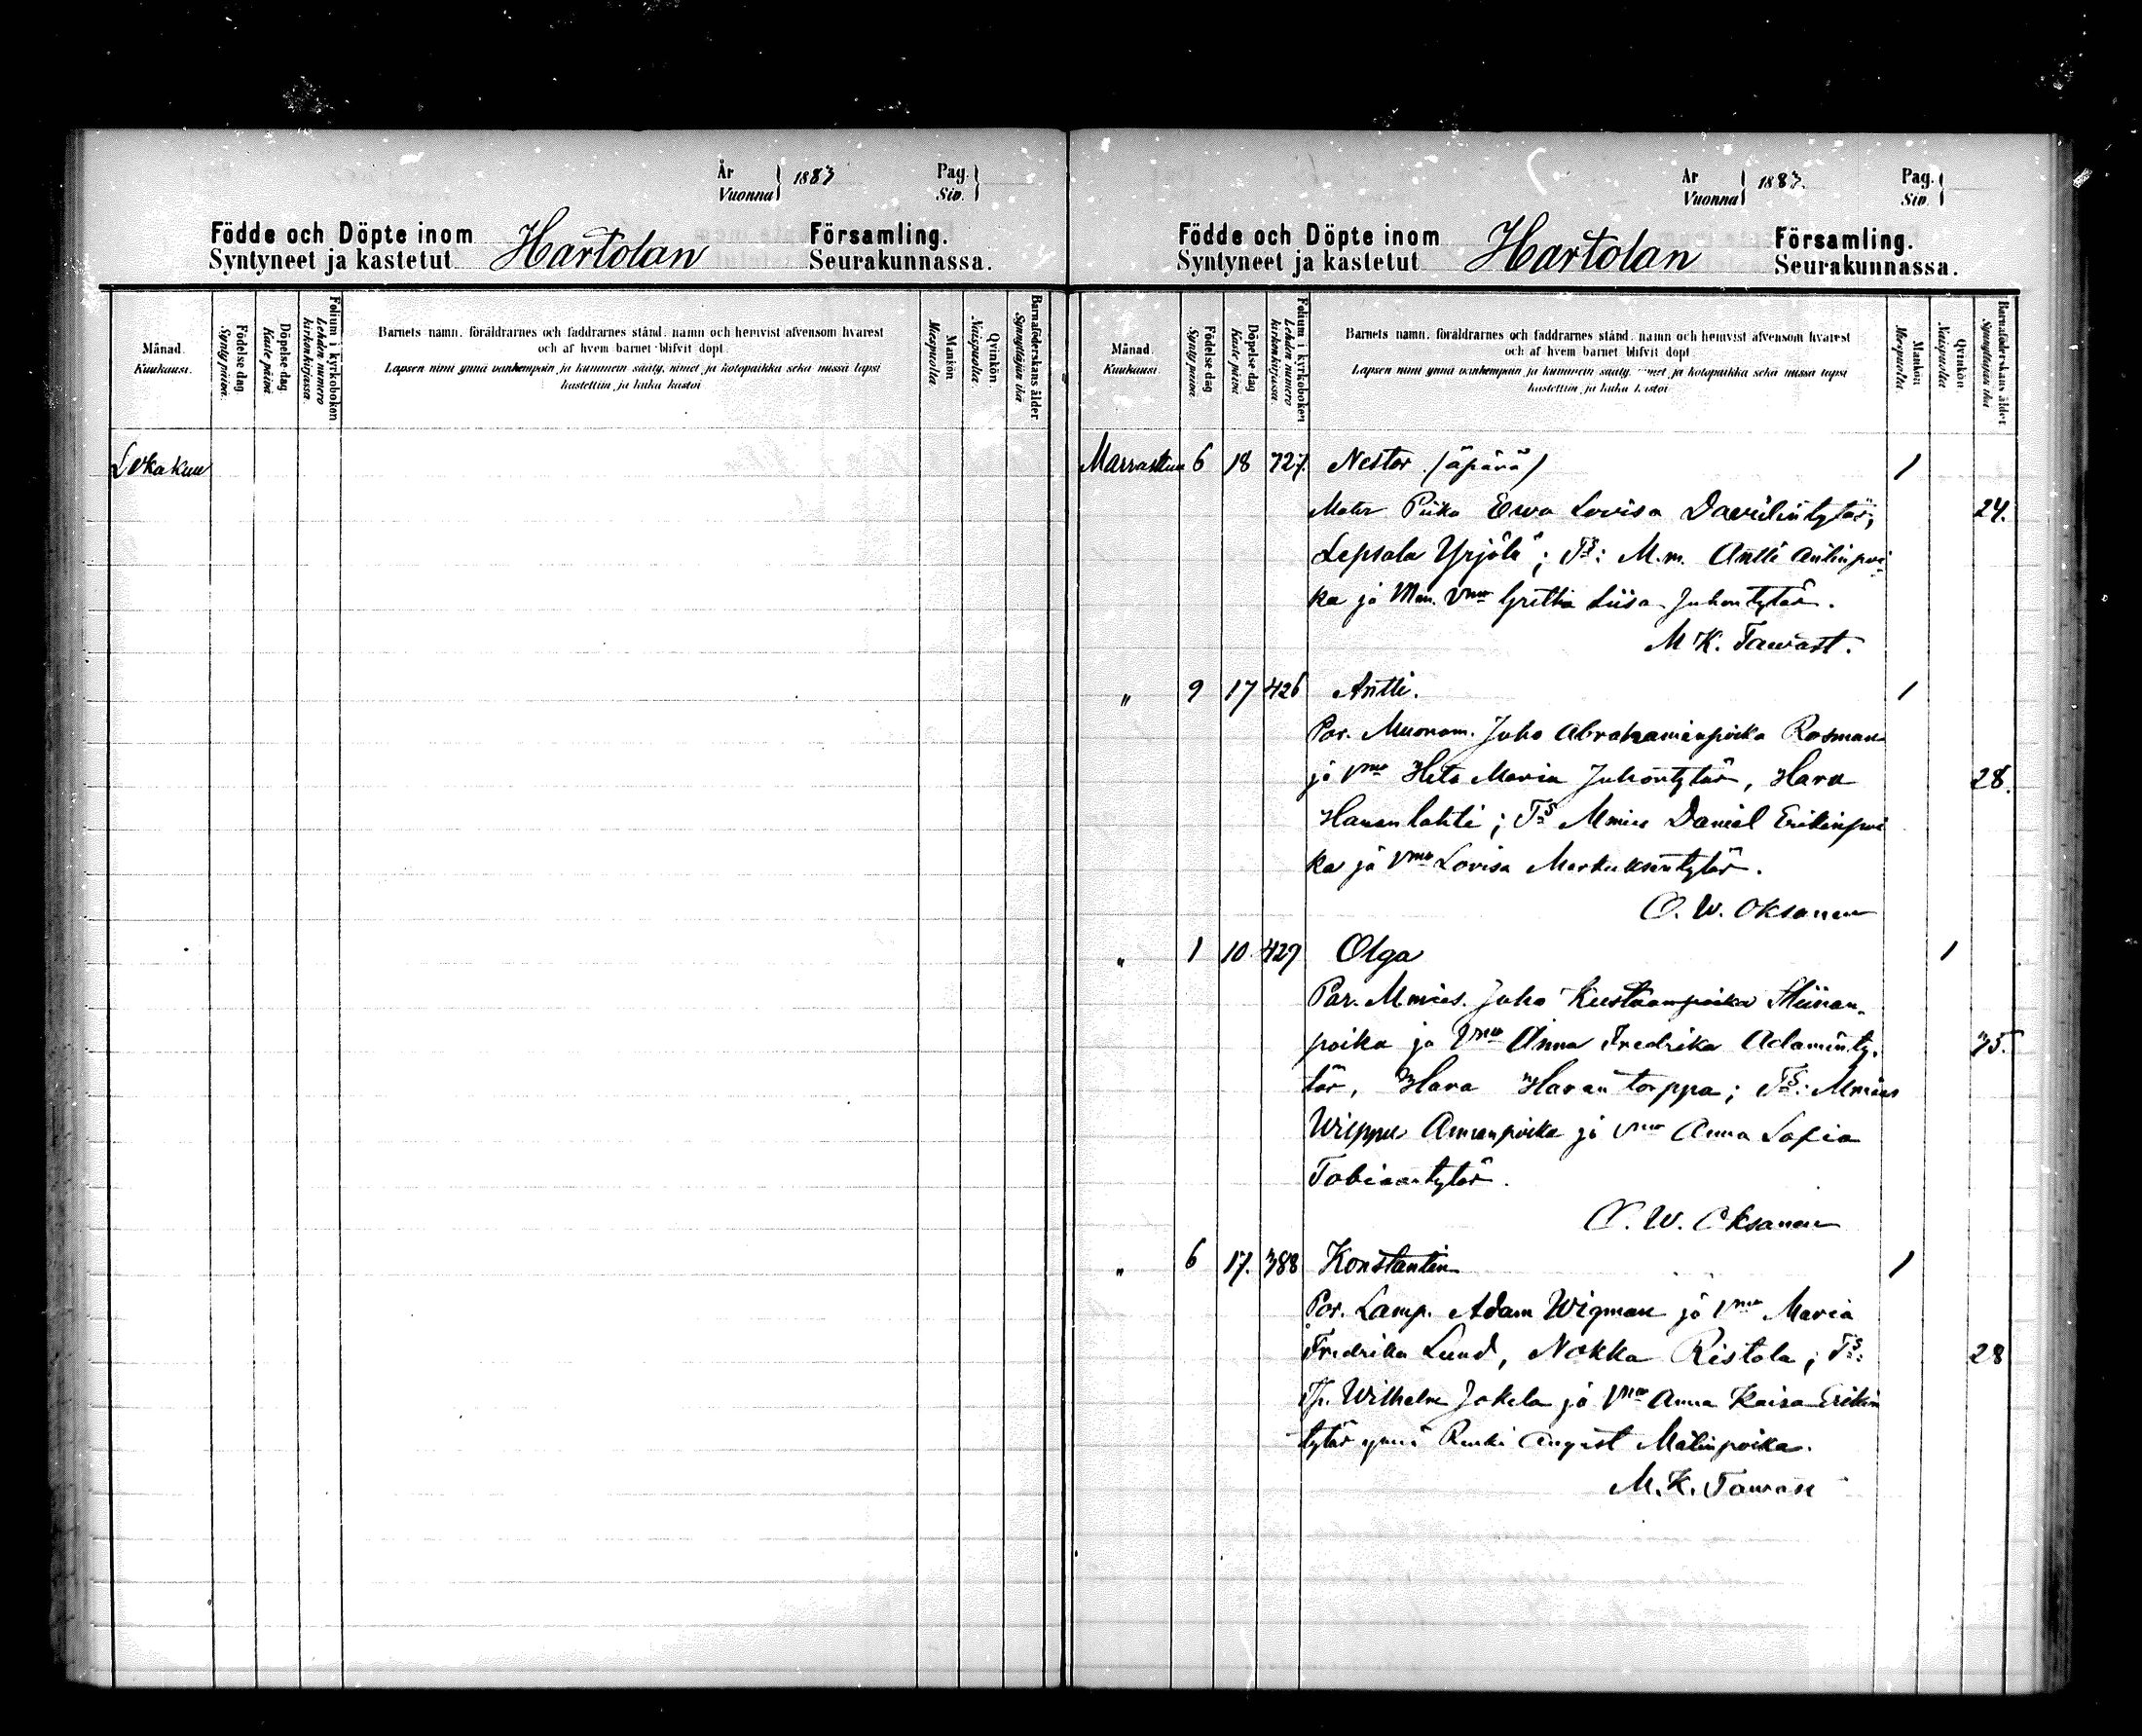 År
Vuonna 1883
Pag.
Siv.
Födde och Döpte inom
Syntyneet ja kastetut
Hartolan
Församling.
Seurakunnassa.
Månad.
Kuukausi.
Födelse dag.
Synty päivä.
Döpelse dag.
Kaste päivä
Folium i kyrkoboken
Lehden numero
kirkonkirjassa.
Barnets namn. föräldrarnes och faddrarnes stånd. namn och hemvist afvensom hvarest
och af hvem barnet blifvit döpt.
Lapsen nimi ynnä vanhempain ja kummein sääty, nimet ja kotopaikka sekä missä lapsi
kastettiin ja kuka kastoi
Mankön
Miespuolia.
Qvinkön
Naispuolia.
Barnaföderskans ålder
Synnyttäjän ikä
Lokakuu
År
Vuonna 1883.
Pag.
Siv.
Födde och Döpte inom
Syntyneet ja kastetut
Hartolan
Församling.
Seurakunnassa.
Månad.
Kuukausi.
Födelse dag
Synty päivä
Döpelse dag
Kaste päivä
Folium i kyrkoboken
Lehden numero
kirkonkirjassa.
Barnets namn. föräldrarnes och faddrarnes stånd. namn och hemvist afvensom hvarest
och af hvem barnet blifvit döpt
Lapsen nimi ynnä vanhempain ja kummein sääty, nimet ja kotopaikka sekä missä lapsi
kastettiin ja kuka kastoi
Mankön
Miespuolia.
Qvinkön.
Naispuolia.
Barnaföderskans ålder
Synnyttäjän ikä
Marraskuu 6 18 727. Nestor (äpärä) 1
Mater Piika Ewa Lovisa Davidintytär, 24.
Lepsala Yrjölä; Ts: M.m. Antti Antinpoi-
ka ja Mm. Vmo Gretta Liisa Juhontytär.
M K. Tawast.
" 9 17 426 Antti. 1
Par. Muonam. Juho Abrahaminpoika Rosman
ja Vmo Heta Maria Juhontytär, Hara 28.
Haran lahti; Ts Mmies Daniel Erikinpoi
ka ja Vmo Lovisa Markuksentytär.
O. W. Oksanen
" 1 10. 429 Olga 1
Par. Mmies. Juho Kustaanpoika
poika ja Vmo Anna Fredrika Adaminty- 35.
tär, Hara Haran torppa; Ts: Mmies
Wilppu Annanpoika ja Vmo Anna Sofia
Tobiaantytär.
O. W. Oksanen
" 6 17. 388 Konstantin 1
Par. Lamp. Adam Wigman ja Vmo Maria
Fredrika Lund, Nokka Ristola; Ts: 28
Tp. Wilhelm Jokela ja Vmo Anna Kaisa Erikin
tytär ynnä Renki August Matinpoika.
M. K. Tawast